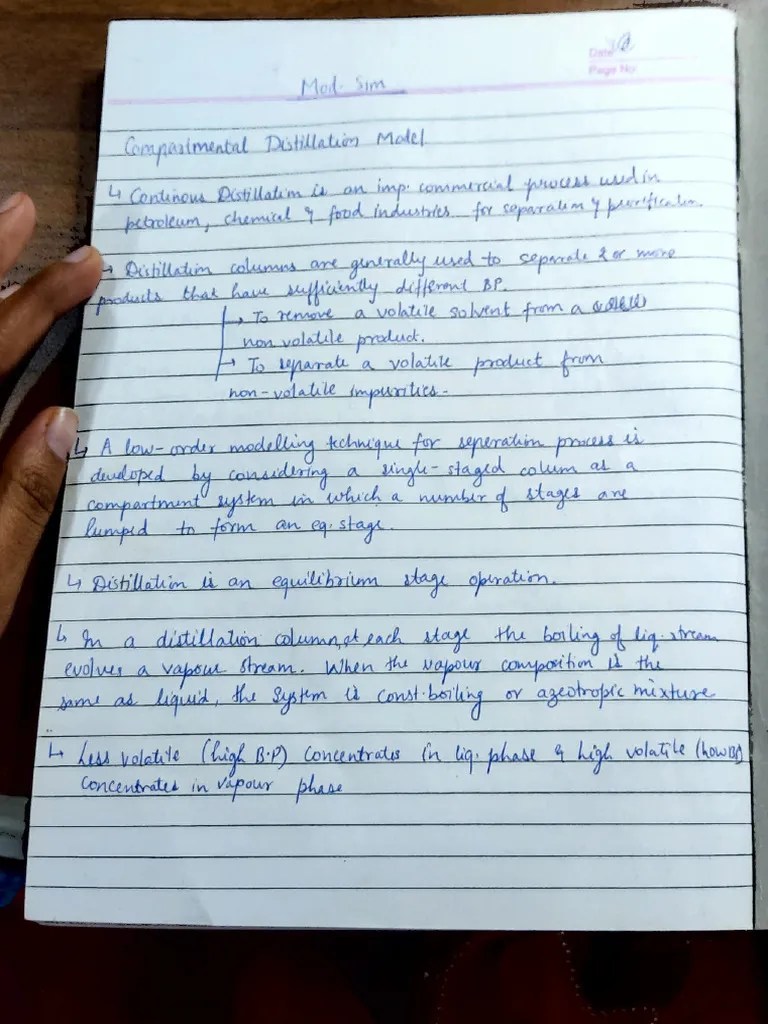 Date
Page No
Mod. Sim
Compartmental Distillation Model
↳ Continous Distillation is an imp. commercial process used in
petroleum, chemical & food industries for separation & purification.
→ Distillation columns are generally used to separate 2 or more
products that have sufficiently different BP.
→ To remove a volatile solvent from a
non volatile product.
→ To separate a volatile product from
non-volatile impurities.
↳ A low-order modelling technique for seperation process is
developed by considering a single-staged colum as a
compartment system in which a number of stages are
lumped to form an eq. stage.
↳ Distillation is an equilibrium stage operation.
↳ In a distillation column, at each stage the boiling of liq. stream
evolves a vapour stream. When the vapour composition is the
same as liquid, the system is const. boiling or azeotropic mixture
↳ Less volatile (high B.P) concentrates in liq. phase & high volatile (low BP)
concentrates in vapour phase